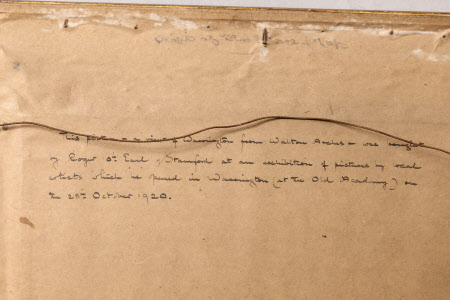 This picture - a view of Warrington from Walton Arches - was bought
by Roger 10th Earl of Stamford at an exhibition of pictures by local
artists which he opened in Warrington (at the Old Academy) on
the 28th October 1920.